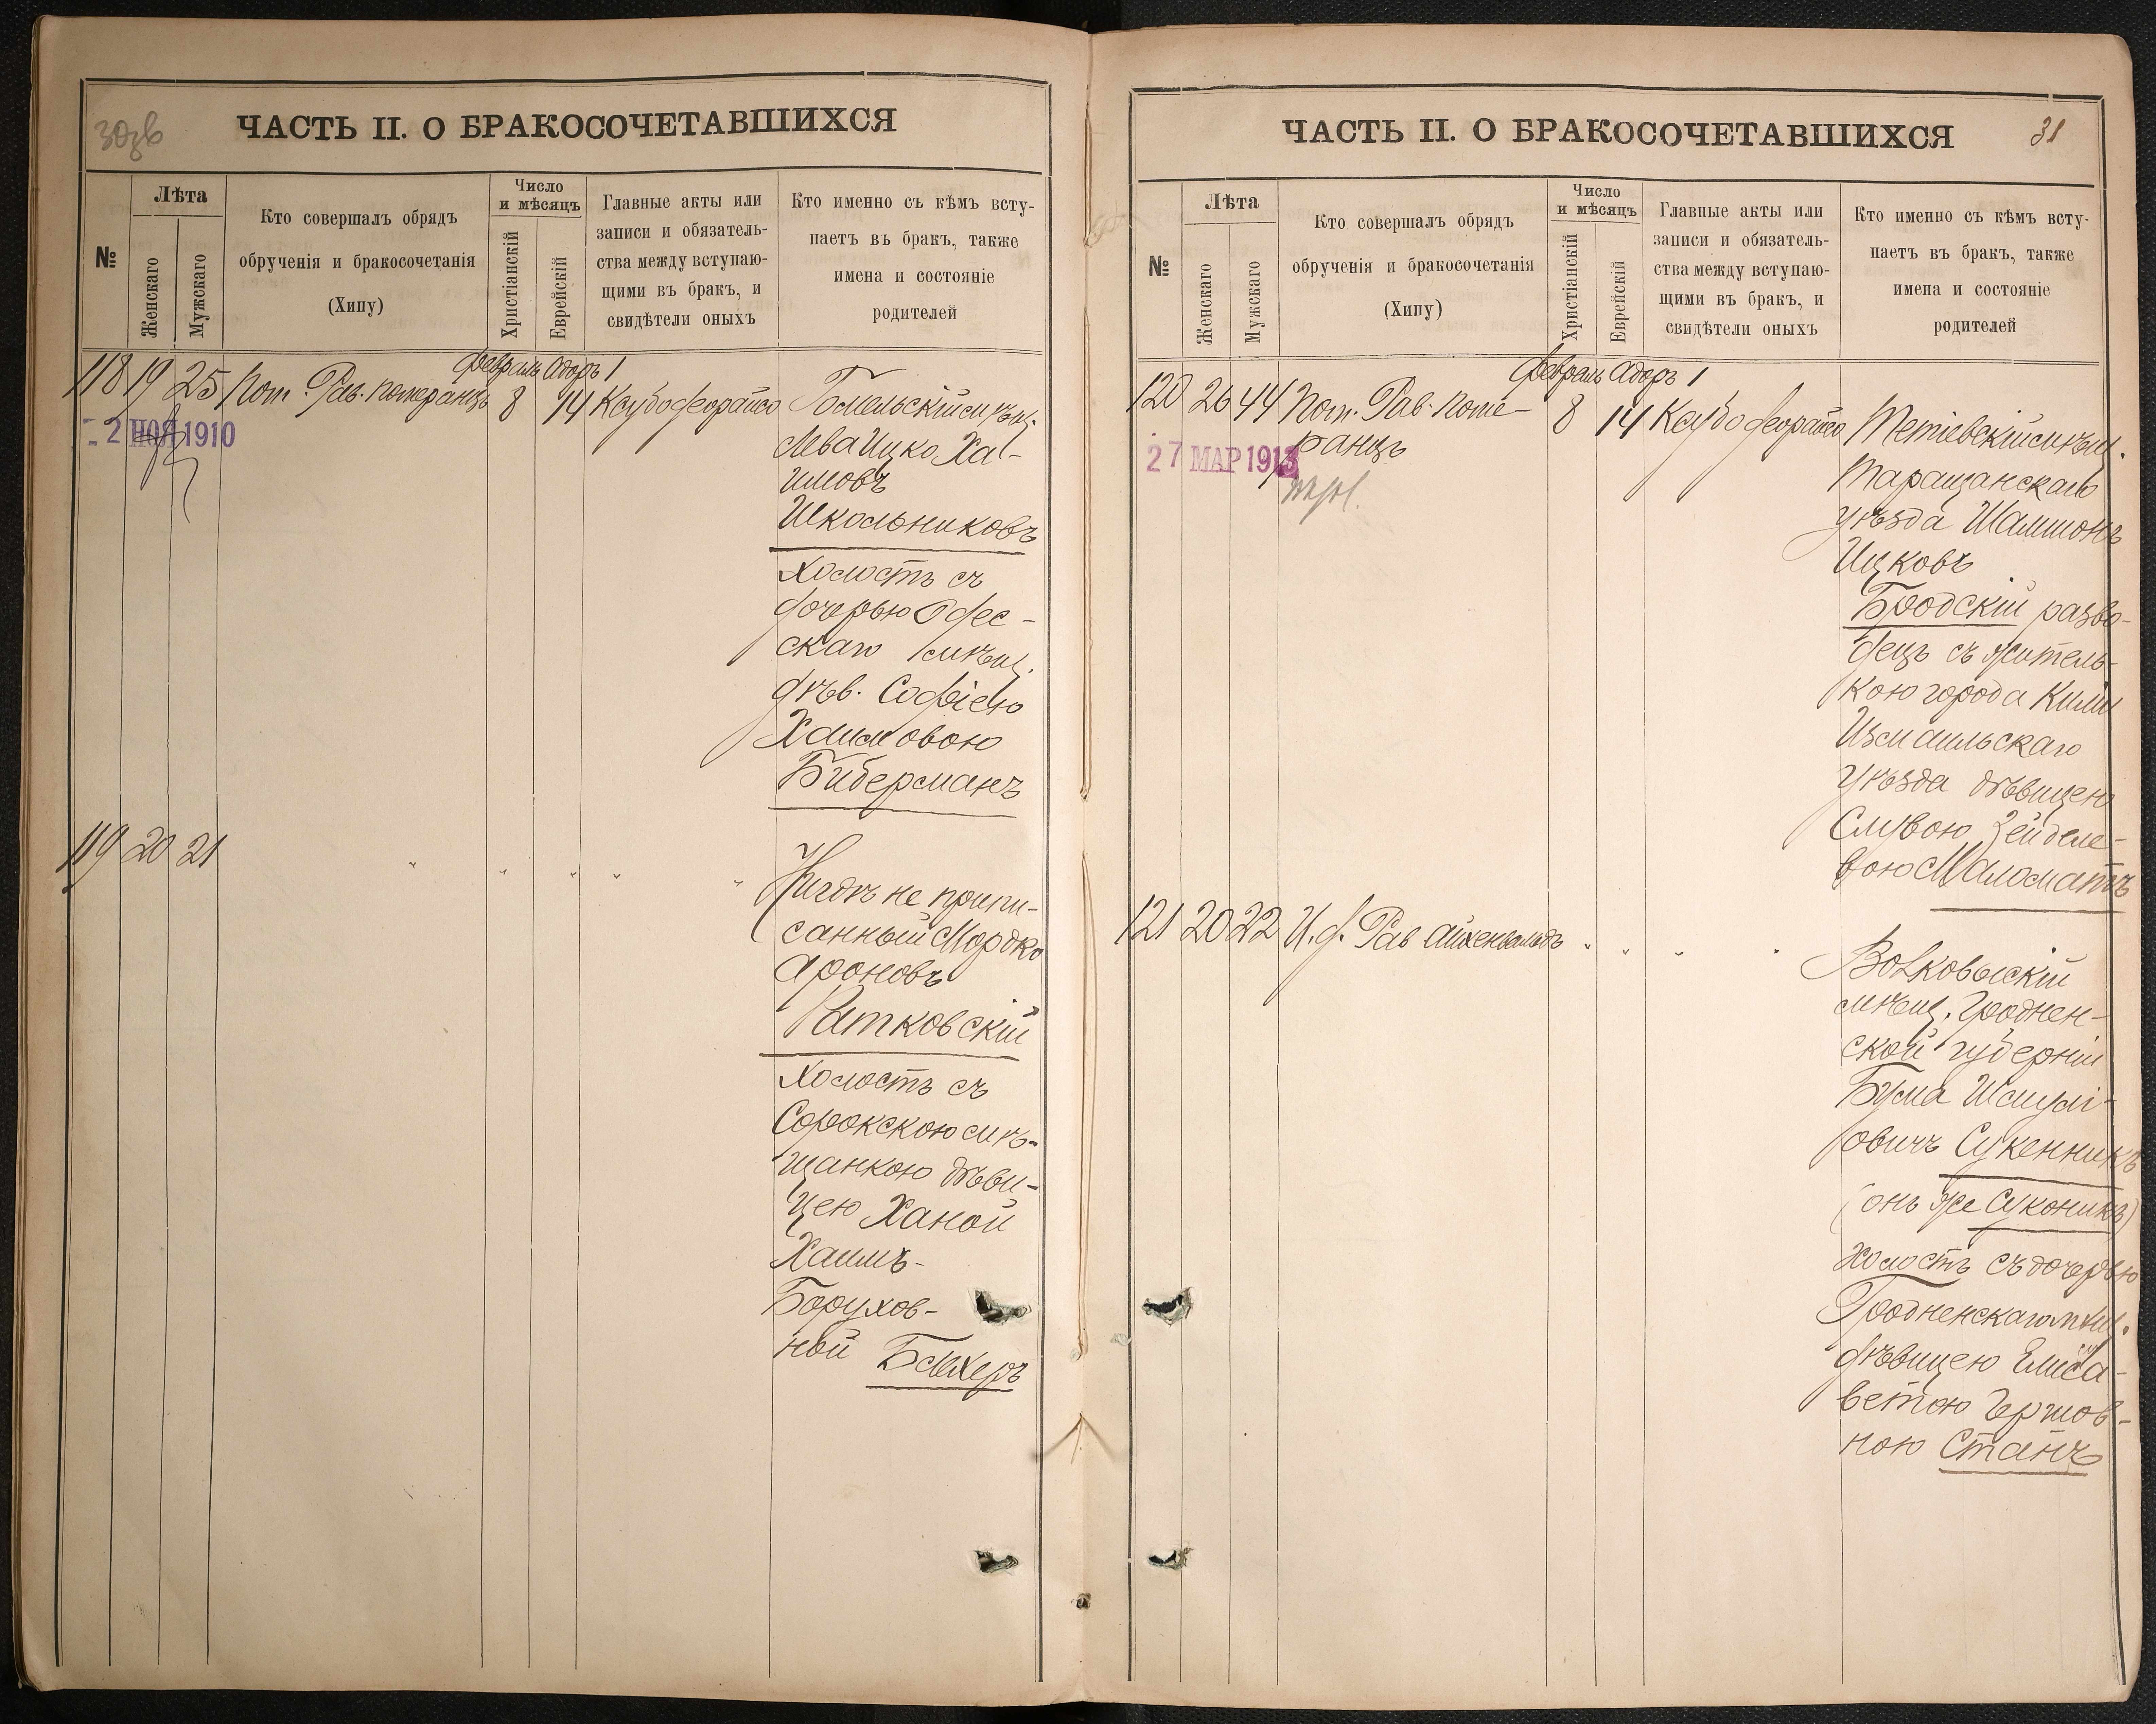 30зв
ЧАСТЬ II. О БРАКОСОЧЕТАВШИХСЯ
№
Лѣта
Женскаго
Мужскаго
Кто совершалъ обрядъ
обрученія и бракосочетанія
(Хипу)
Число
и мѣсяцъ
Христіанскій
Еврейскій
Главные акты или
записи и обязатель-
ства между вступаю-
щими въ бракъ, и
свидѣтели оныхъ
Кто именно съ кѣмъ всту-
паетъ въ бракъ, также
имена и состояніе
родителей
февраль Адоръ 1
118 19 25 Пом. Рав. Померанцъ 8 14 Ксубо феорайсо
2 НОЯ 1910
Гомельскій мѣщ.
Лева Ицко Ха-
имовъ
Школьниковъ
холостъ съ
дочерью Одес-
скаго мѣщ.
дѣв. Софіею
Хаимовою
Биберманъ
119 20 21 " " " " "
Нигдѣ не припи-
санный Мордко
Ароновъ
Ратковскій
холостъ съ
Сорокскою мѣ-
щанкою дѣви-
цею Ханой
Хаимъ-
Борухов-
ной Блехеръ
ЧАСТЬ II. О БРАКОСОЧЕТАВШИХСЯ
31
№
Лѣта
Женскаго
Мужскаго
Кто совершалъ обрядъ
обрученія и бракосочетанія
(Хипу)
Число
и мѣсяцъ
Христіанскій
Еврейскій
Главные акты или
записи и обязатель-
ства между вступаю-
щими въ бракъ, и
свидѣтели оныхъ
Кто именно съ кѣмъ всту-
паетъ въ бракъ, также
имена и состояніе
родителей
февраль Адоръ 1
120 26 44 Пом. Рав. Поме-
ранцъ
8 14 Ксубо феорайсо
27 МАР 1913
Тетіевскій мѣщ.
Таращанскаго
уѣзда Шамшонъ
Ицковъ
Бродскій разво-
децъ съ житель-
кою города Киліи
Измаильскаго
уѣзда дѣвицею
Слувою Зейделе-
вою Маломатъ
121 20 22 И.д. Рав Айхенвальдъ " " " "
Волковыскій
мѣщ. Гроднен-
ской губерніи
Бума Шмулі-
овичъ Сукенникъ
(онъ же Суконикъ)
холостъ съ дочерью
Гродненскаго мѣщ.
дѣвицею Елиса-
ветою Гершов-
ною Станъ